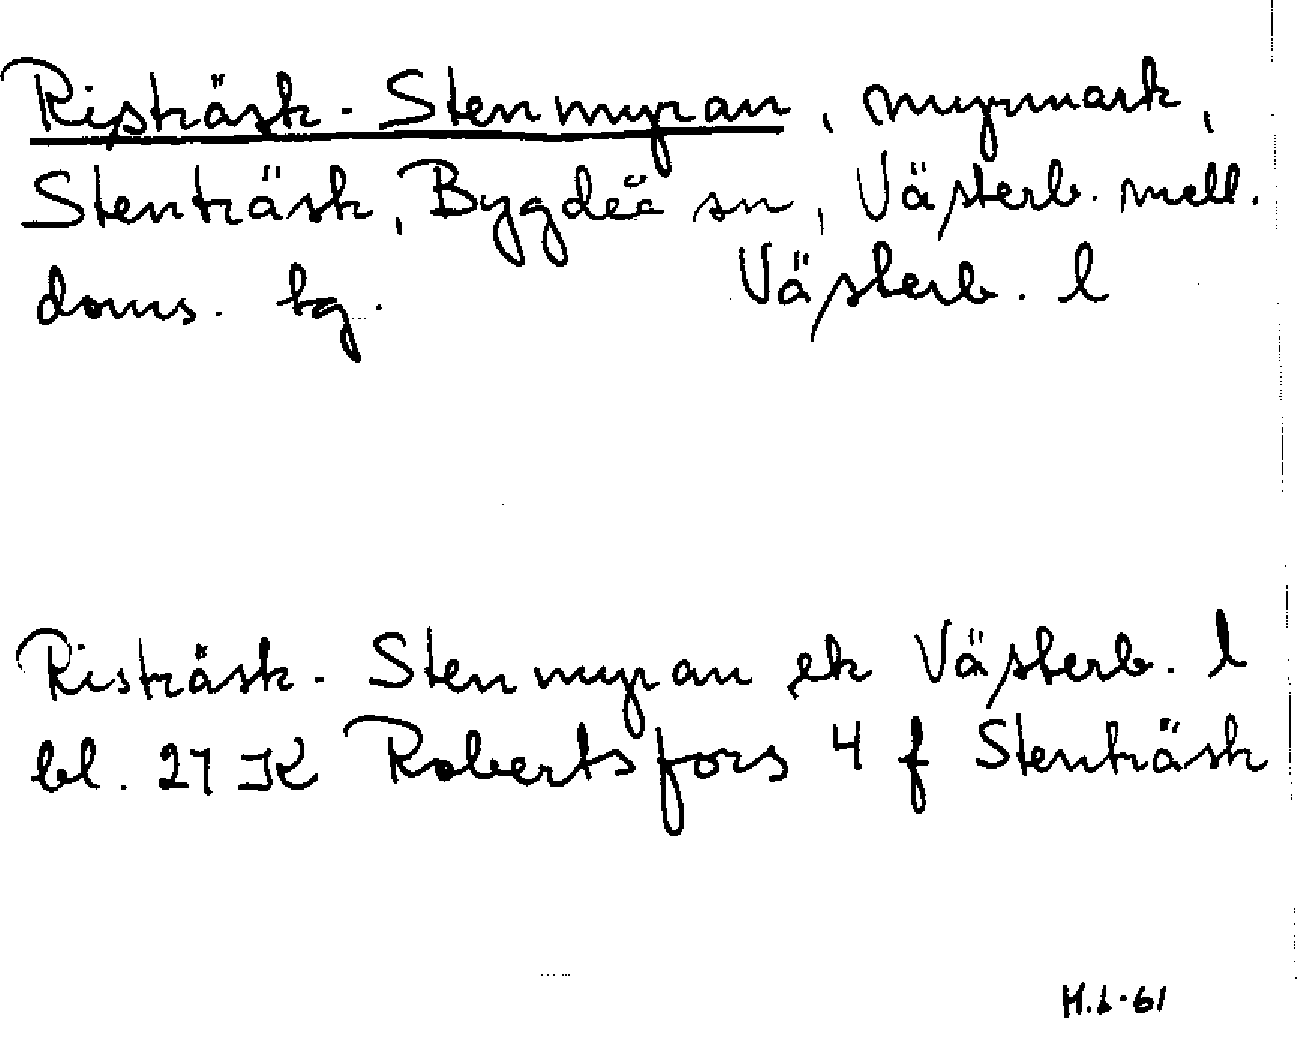 Risträsk-Stenmyran, myrmark,
Stenträsk, Bygdeå sn, Västerb. mell.
doms. tg. Västerb. l
Risträsk-Stenmyran ek Västerb. l
bl. 21 K Robertsfors 4 f Stenträsk
H.L.61